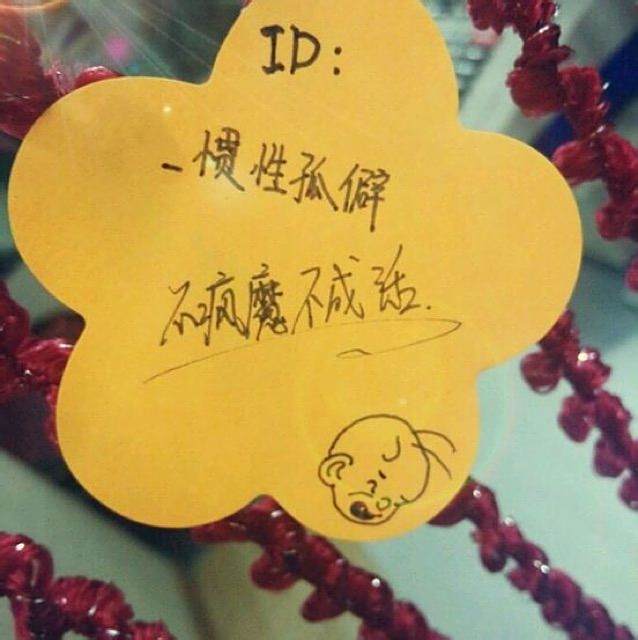 ID:
-惯性孤僻
不疯魔不成活.